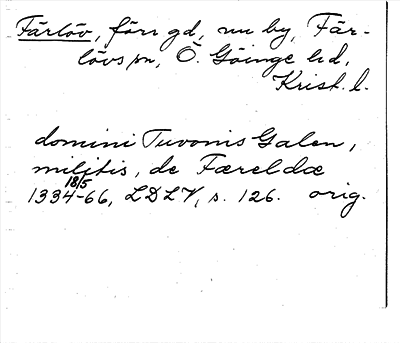 Färlöv, förr gd, nu by, Fär-
lövs sn, Ö. Göinge hd,
Krist. l.
domini Tuvonis Galen,
militis, de Færeldæ
18/5
1334-66, LDLV, s. 126. orig.